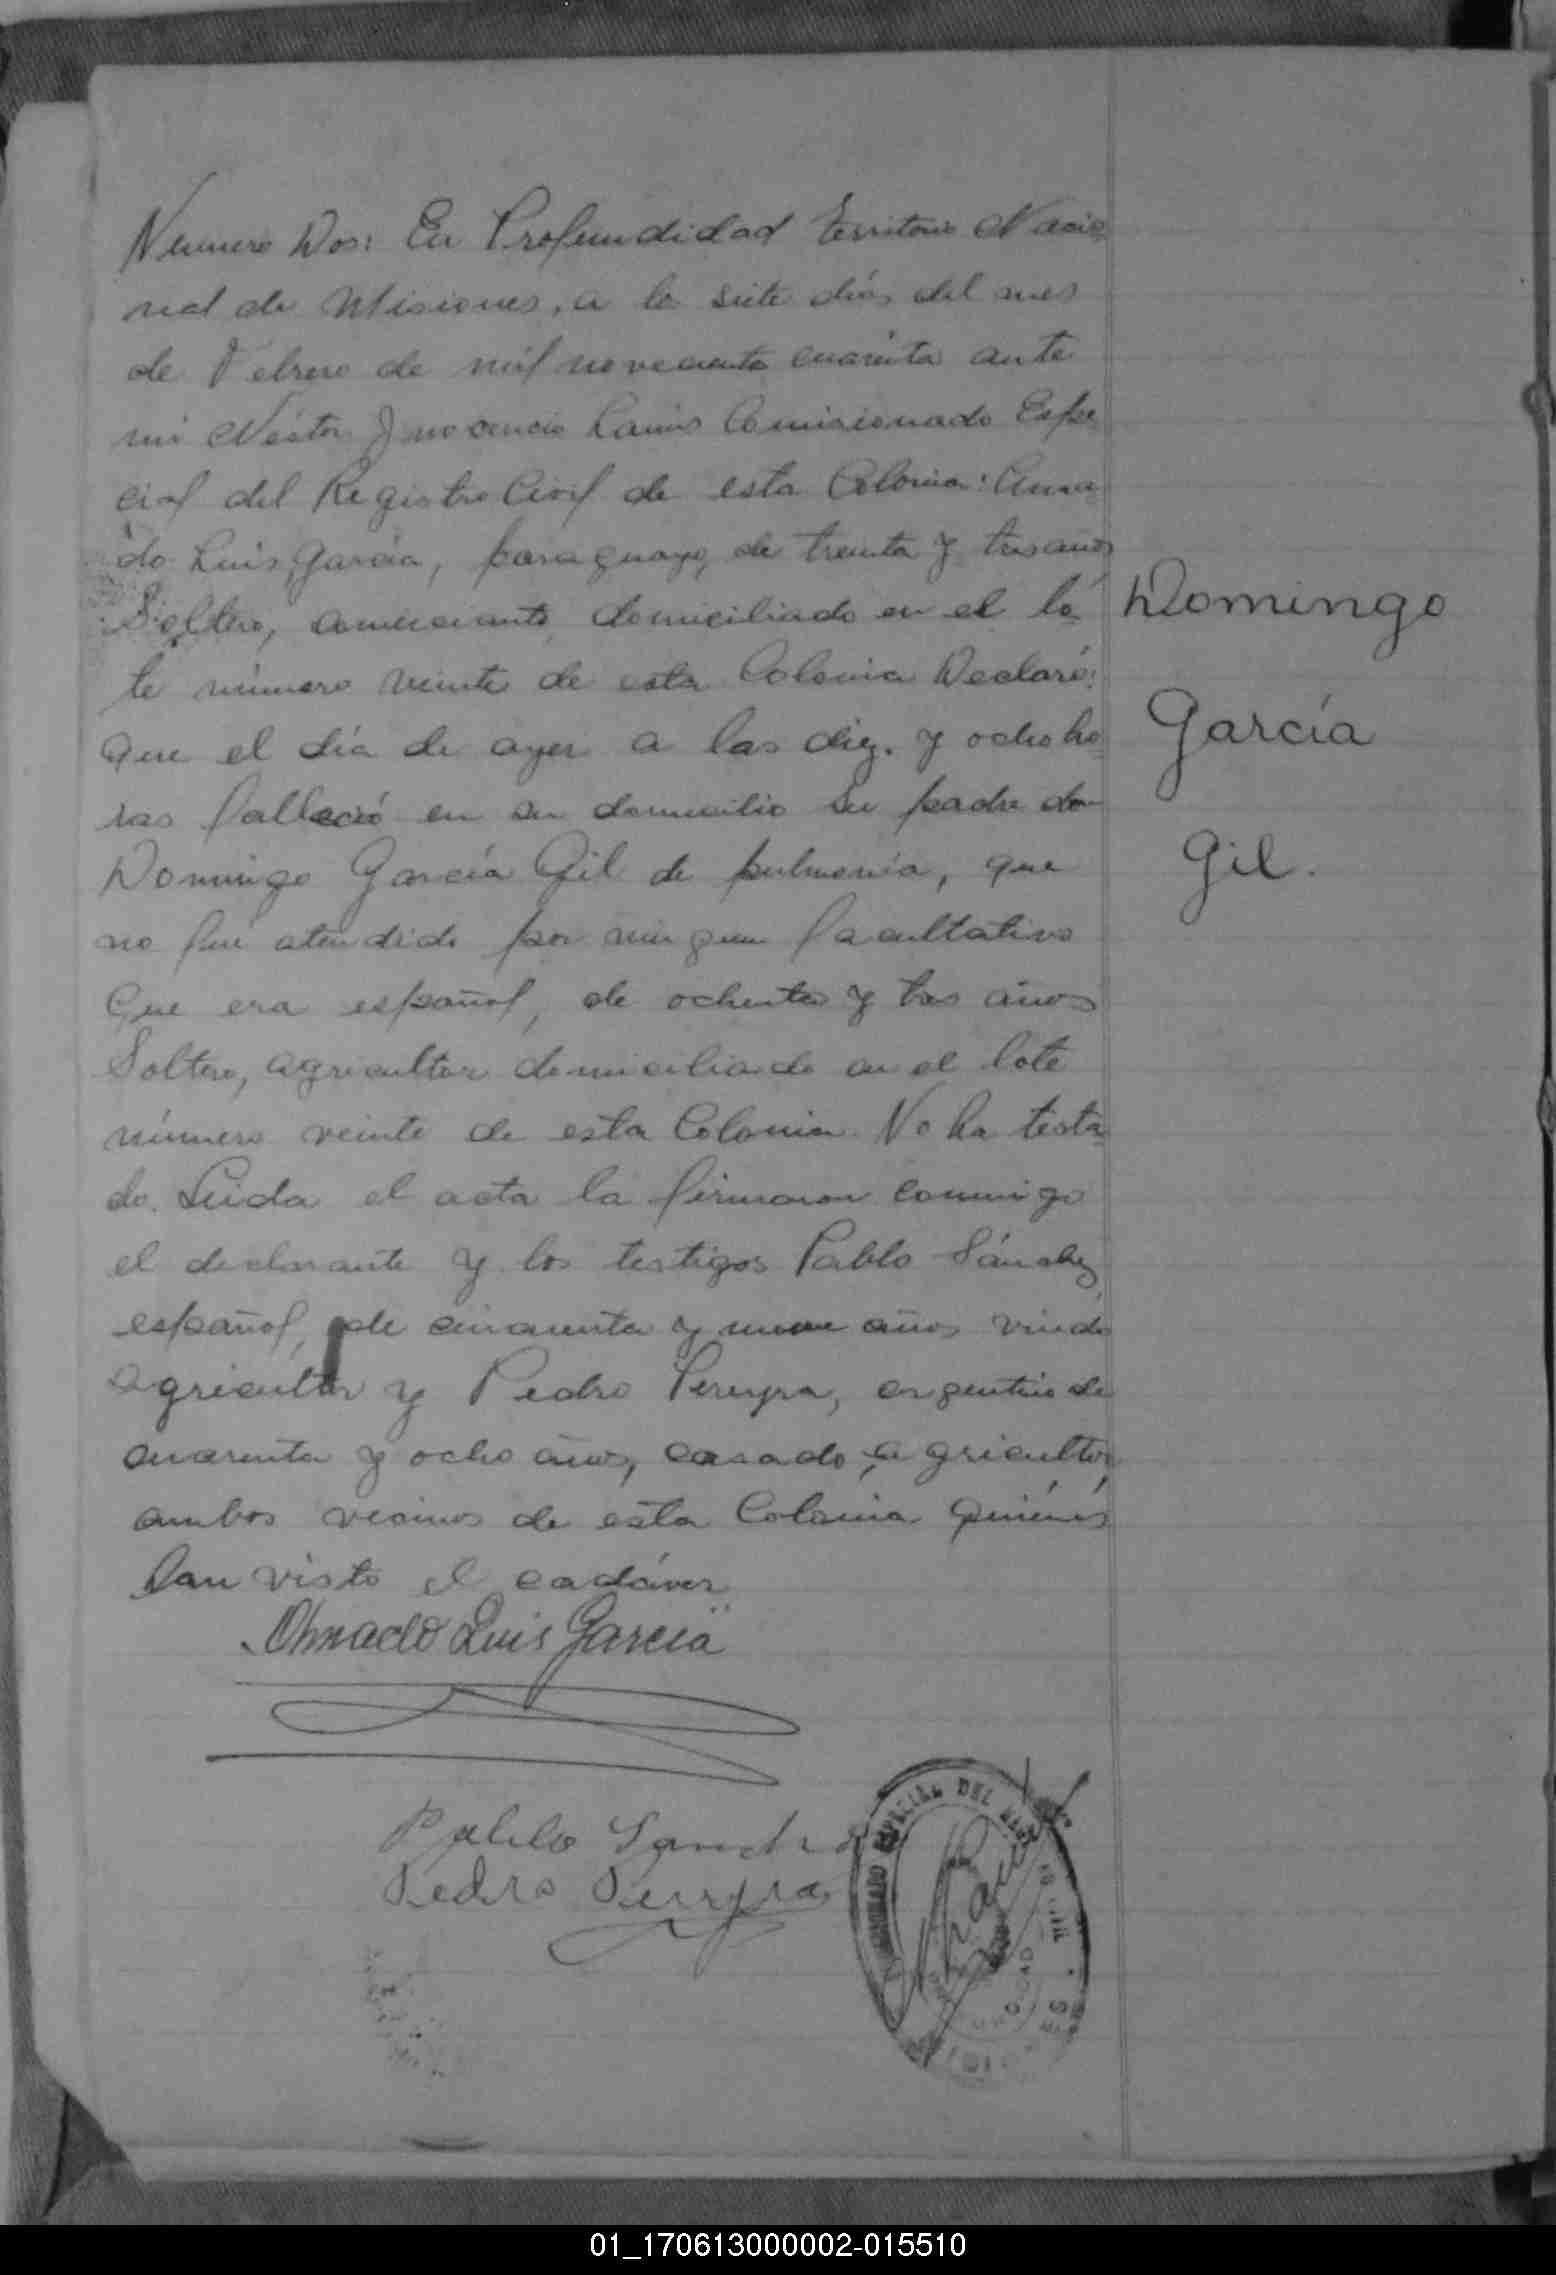 Numero Dos: En Profundidad Territorio Nacio
nal de Misiones, a lo siete días del mes
de Febrero de mil novecientos cuarenta ante
mi Néstor Inocencio Lanús Comisionado Espe
cial del Registro Civil de esta Colonia: Ama
do Luis García, paraguayo, de treinta y tres años
Soltero, comerciante, domiciliado en el lo
te número veinte de esta Colonia Declaró:
que el día de ayer a las diez. y ocho ho
ras falleció en su domicilio su padre don
Domingo García Gil de pulmonía, que
no fué atendido por ningun facultativo
Que era español, de ochenta y tres años
Soltero, agricultor domiciliado en el lote
número veinte de esta Colonia. No ha testa
do. Leida el acta la firmaron conmigo
el declarante y los testigos Pablo Sánchez,
español, de cincuenta y nueve años viudo
agricultor y Pedro Pereyra, argentino de
cuarenta y ocho años, casado, agricultor
ambos vecinos de esta Colonia quiénes
han visto el cadáver
Domingo
García
Gil.
Amado Luis García
Pablo Sanchez
Pedro Pereyra
COMISIONADO ESPECIAL DEL REGISTRO CIVIL
01_170613000002-015510